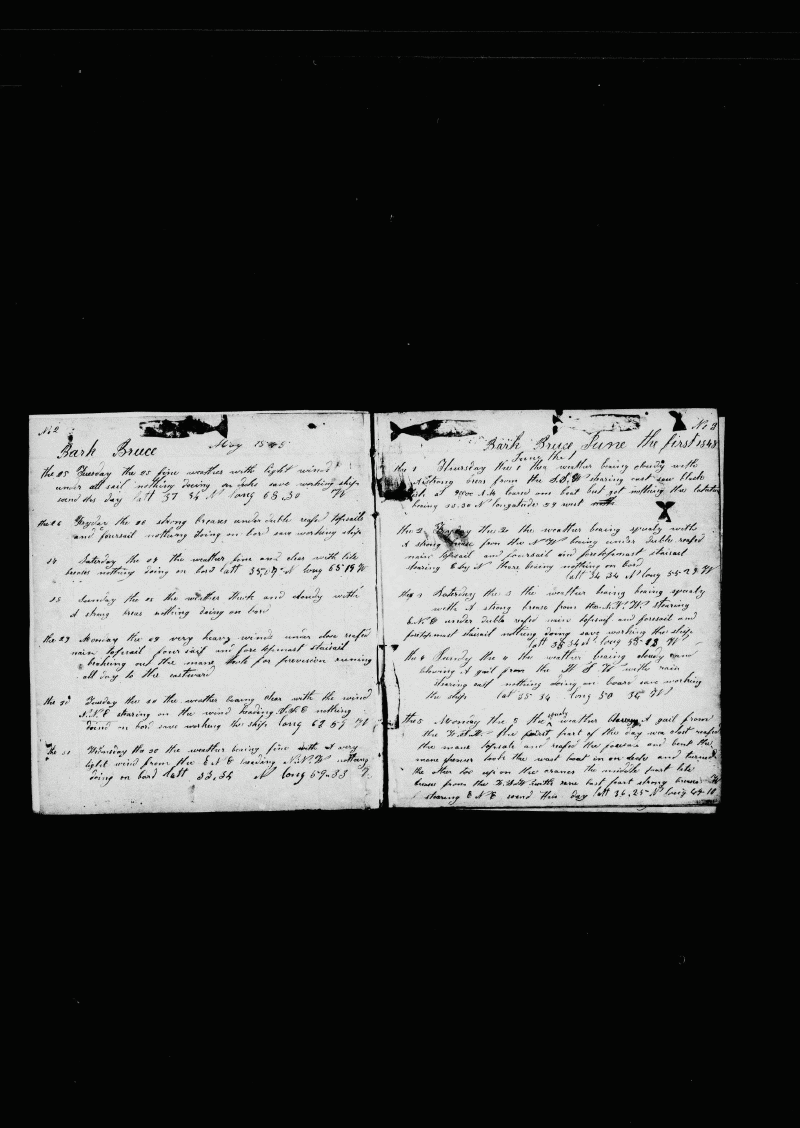 No 2
Bark Bruce May 1848
the 25 Tuesday the 25 fine weather with light wind
under all sail nothing doing on deke save working ship
send des day latt 37 34 N long 68,30 W
the 26 Fryday the 26 strong breases under duble reafed topsails
and foursail nothing doing on bord save working ship
Saturday the weather fine and clear with lite
breses nothing doing on bord latt 35,07 N long 65-19 W
Sunday the the weather thick and cloudy with
A strong breas nothing doing on bord
the 29 Monday the 29 very heavy winds under close reafed
main topsail four sail and fore topmast staisail
breking out the mane for provision runing
all day to the eastward
the Tusday the 30 the weather bearing clear with the wind
N.N.E stearing on the wind heading nothing
doind on bord save working the ship long 62 57 W
the 31 Wednesday the 30 the weather being fine with a very
light wind from the heading N.N.W nothing
doing on bord latt 33,34 N long 59-33 W
No 3
Bark Bruce June the first 1848
June the 1
the 1 Thursday the 1 the weather being cloudy with
A strong breas from the S.S.W stearing east saw black
fish at A M lowerd one boat but got nothing the latatude
being 33.30 N longatude 59 west
the 2 Fryday the 2 the weather being squaly with
A strong brease from the N W being under duble reefed
main topsail and foursail and foretopmast staisail
stearing E by N there being nothing on bord
latt 34 34 N long 55-29 W
the 3 Saturday the 3 the weather being being squaly
with A strong brease from the N.N.W. stearing
E.N.E under duble refed main topsail and foresail and
foretopmast staisail nothing doing save working the ship
latt 35 34 N long 53-23 W
the 4 Sunday the 4 the weather being cloudy and
blowing A gail from the W S W with rain
stearing east nothing doing on board save working
the ship lat 35 34 long 50 36 W
the 5 Monday the 5 the weather A gail from
the W.S.W. the first part of the day was close reefed
the mane topsale and reefed the foresaie and bent the
mane took the wast boat in on deck and turned
the other too up on the cranes the midle part lite
brease from the W.S.W with rane last part strong brease
stearing E N E send this day latt 36,25 N long 47-10